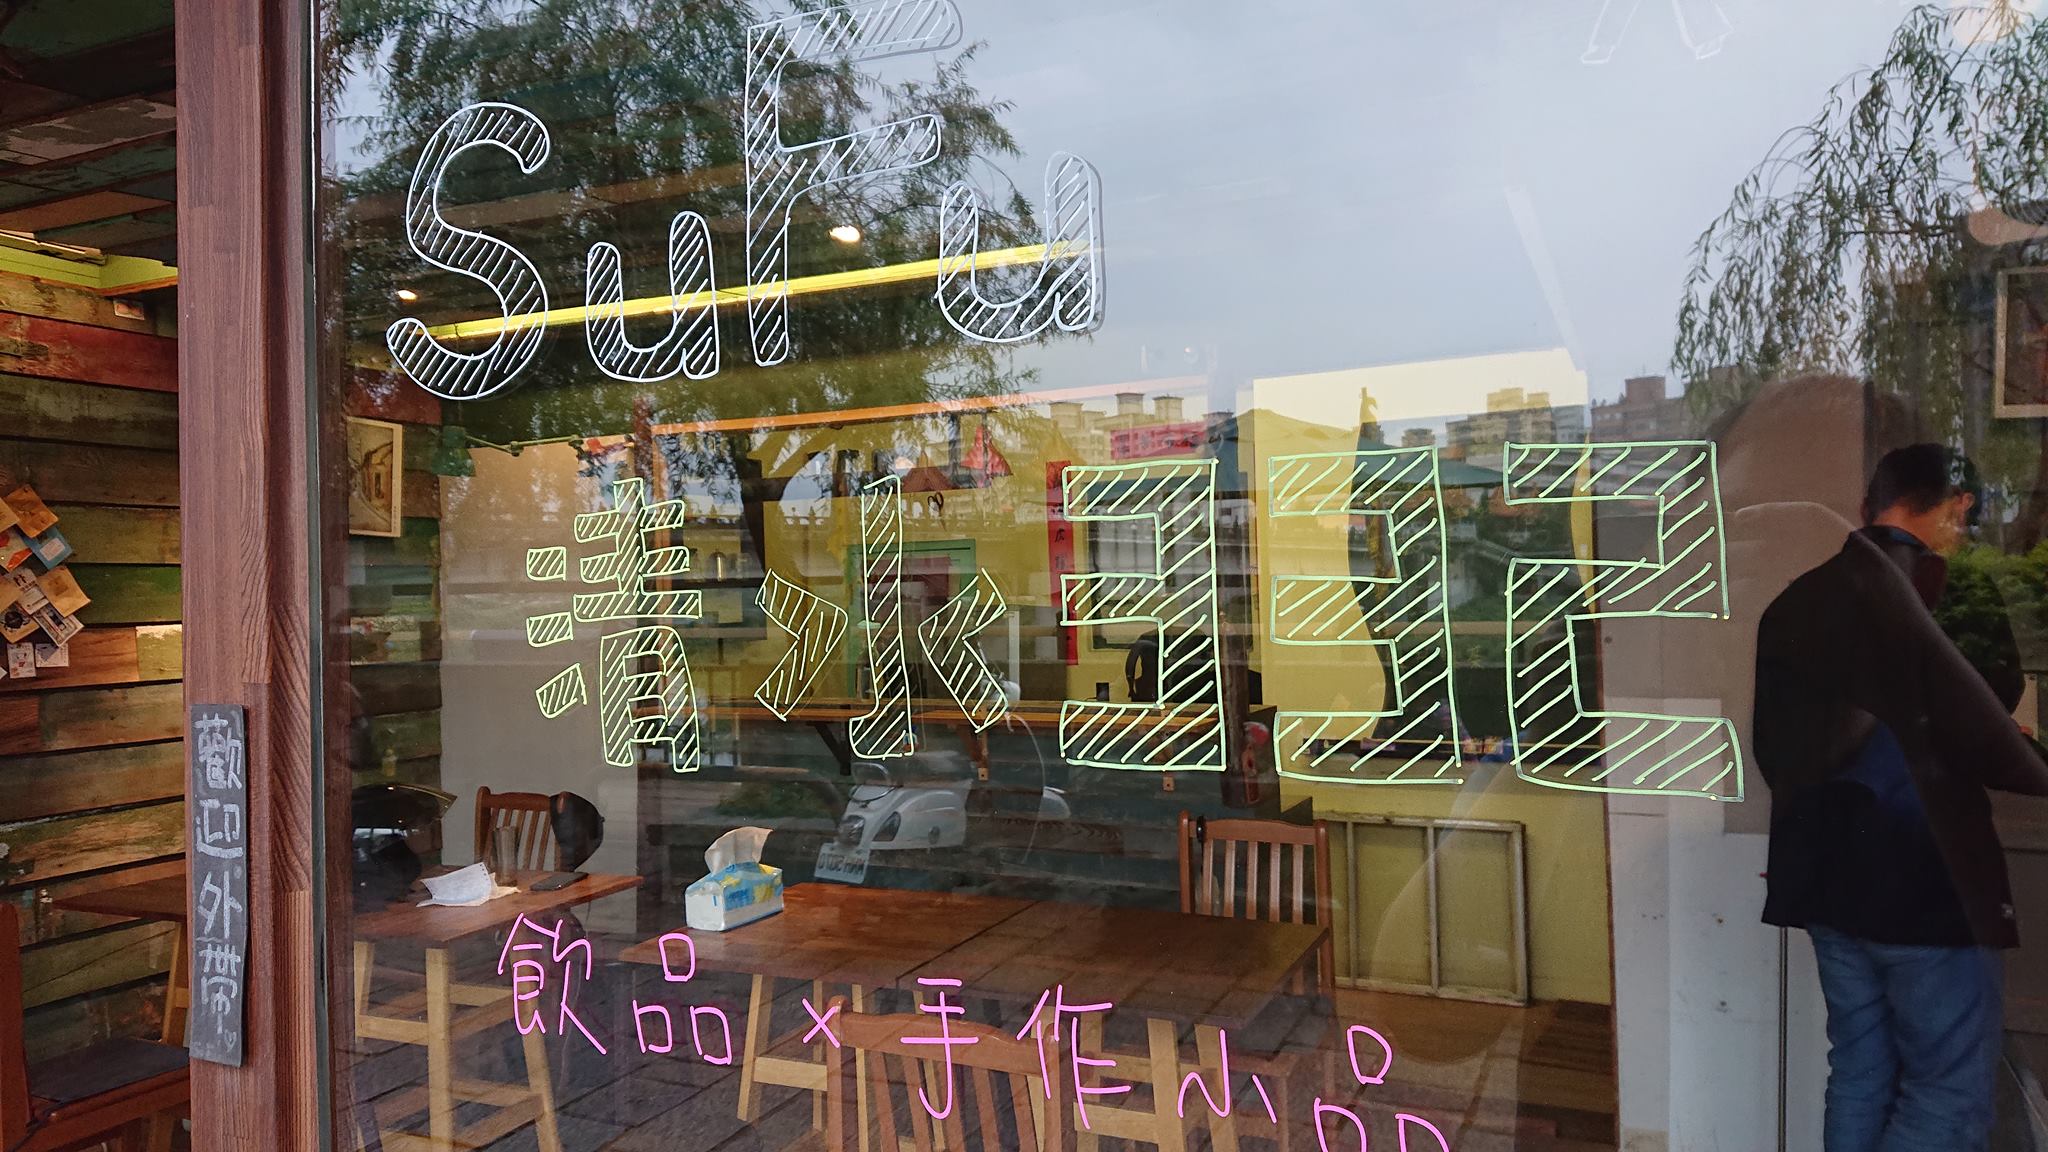 SuFu
清水332
飲品×手作小品
歡迎外帶